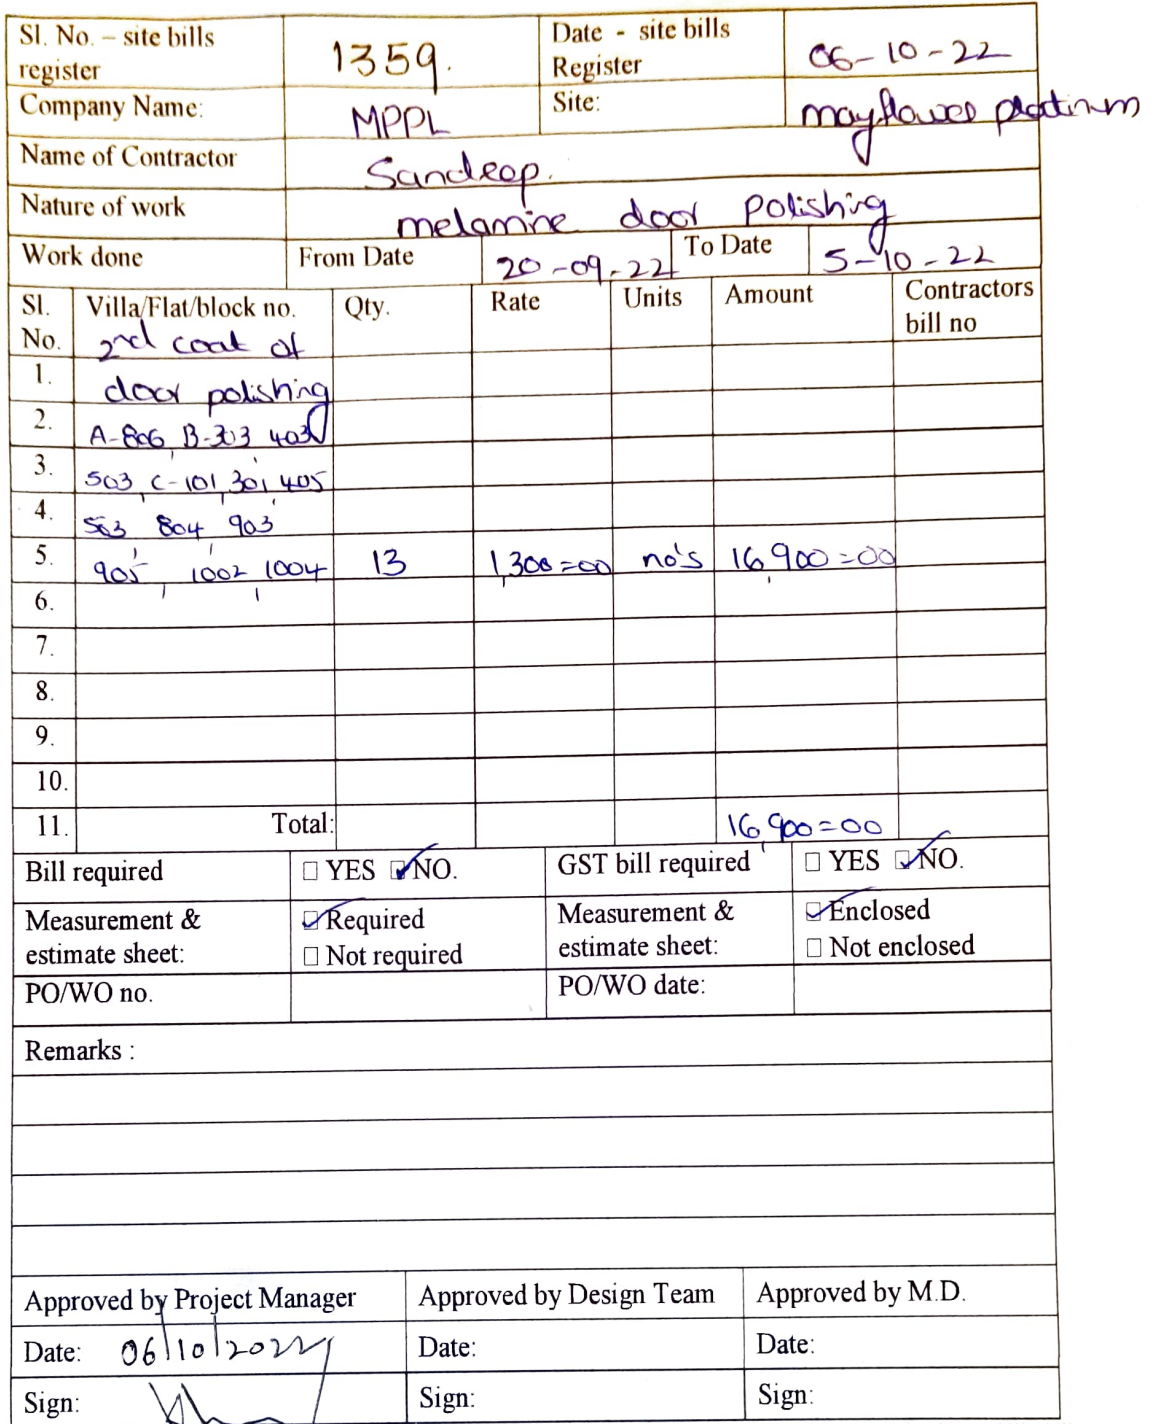 Sl. No. – site bills register 1359. Date - site bills Register 06-10-22
Company Name: MPPL Site: mayflower platinum
Name of Contractor Sandeep.
Nature of work melamine door polishing
Work done From Date 20-09-22 To Date 5-10-22
Sl. No. Villa/Flat/block no. Qty. Rate Units Amount Contractors bill no
2nd coat of
1. door polishing
2. A-806, B-303, 403
3. 503, C-101, 301, 405
4. 503, 804, 903
5. 905, 1002, 1004 13 1,300=00 no's 16,900=00
6.
7.
8.
9.
10.
11. Total: 16,900=00
Bill required ☐ YES ☑ NO. GST bill required ☐ YES ☑ NO.
Measurement & ☑ Required Measurement & ☑ Enclosed
estimate sheet: ☐ Not required estimate sheet: ☐ Not enclosed
PO/WO no. PO/WO date:
Remarks :
Approved by Project Manager Approved by Design Team Approved by M.D.
Date: 06/10/2022 Date: Date:
Sign: Sign: Sign: